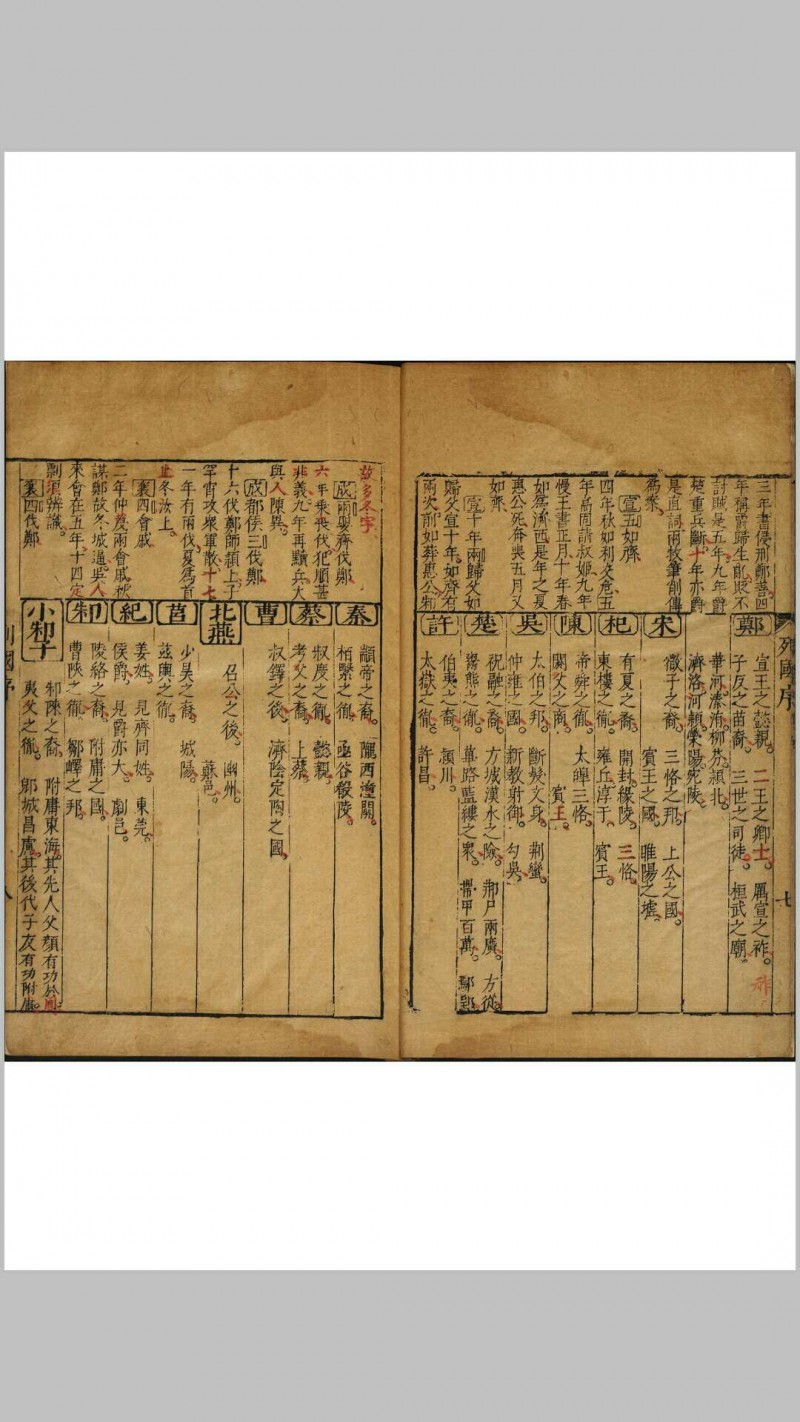 三年書侵刑鄭善四
年稱爵歸生
貶不
討賊是五年九年爵
楚重兵斷十年亦爵
是直詞兩牧筆創傳
為案
宣五如齊
四年秋如利交危五
年高固請叔姬九年
慢王書正月十年春
如為濟西是年之夏
惠公死奔喪五月又
如齊
宣十年兩歸父如
歸父宣十年如齊有
兩次前如葬惠公
列國序
七
鄭
宣王之懿親 二王之卿士 厲宣之祚
子友之苗裔 三世之司徒 桓武之廟
華河溱洧柳芬潁北
濟洛河潁滎陽宛陵
宋
微子之裔 三恪之邦 上公之國
賓王之國 睢陽之墟
杞
有夏之裔 開封緱陵 三恪
東樓之胤 雍丘淳于 賓王
陳
帝舜之胤 太皡三恪
閼父之南 賓王
吳
太伯之邦 斷髮文身 荆蠻
仲雍之國 新教射御 勾吳
楚
祝融之裔 方城漢水之險 荆尸兩廣 方從
鬻熊之胤 蓽路藍縷之衆 帶甲百萬 鄢郢
許
伯夷之裔 潁川
太嶽之胤 許昌
故多冬字
成兩娶齊伐鄭
六年乘喪伐犯順甚
非義九年再黷兵大
與入陳異
成都侯三伐鄭
十六伐鄭師潁上子
罕宵攻衆軍散十七
一年有兩伐夏為首
止冬汝上
襄四會戚
二年仲
慶兩會戚
謀鄭故冬城逼吳人
來會在五年十四定
剽須辨識
襄四伐鄭
秦
顓帝之裔 隴西潼關
栢繄之胤 函谷殽陵
蔡
叔度之胤 懿親
考父之裔 上蔡
曹
叔鐸之後 濟陰定陶之國
北燕
召公之後 幽州
薊邑
莒
少昊之裔 城陽
茲輿之胤
紀
姜姓 見齊同姓 東莞
侯爵 見爵亦大 劇邑
邾
陵絡之裔 附庸之國
曹陜之胤 鄒嶧之邦
小邾子
邾陳之裔 附庸東海其先人父顏有功於周
夷父之胤 郳城昌慮其後代子友有功附庸
列國序
八